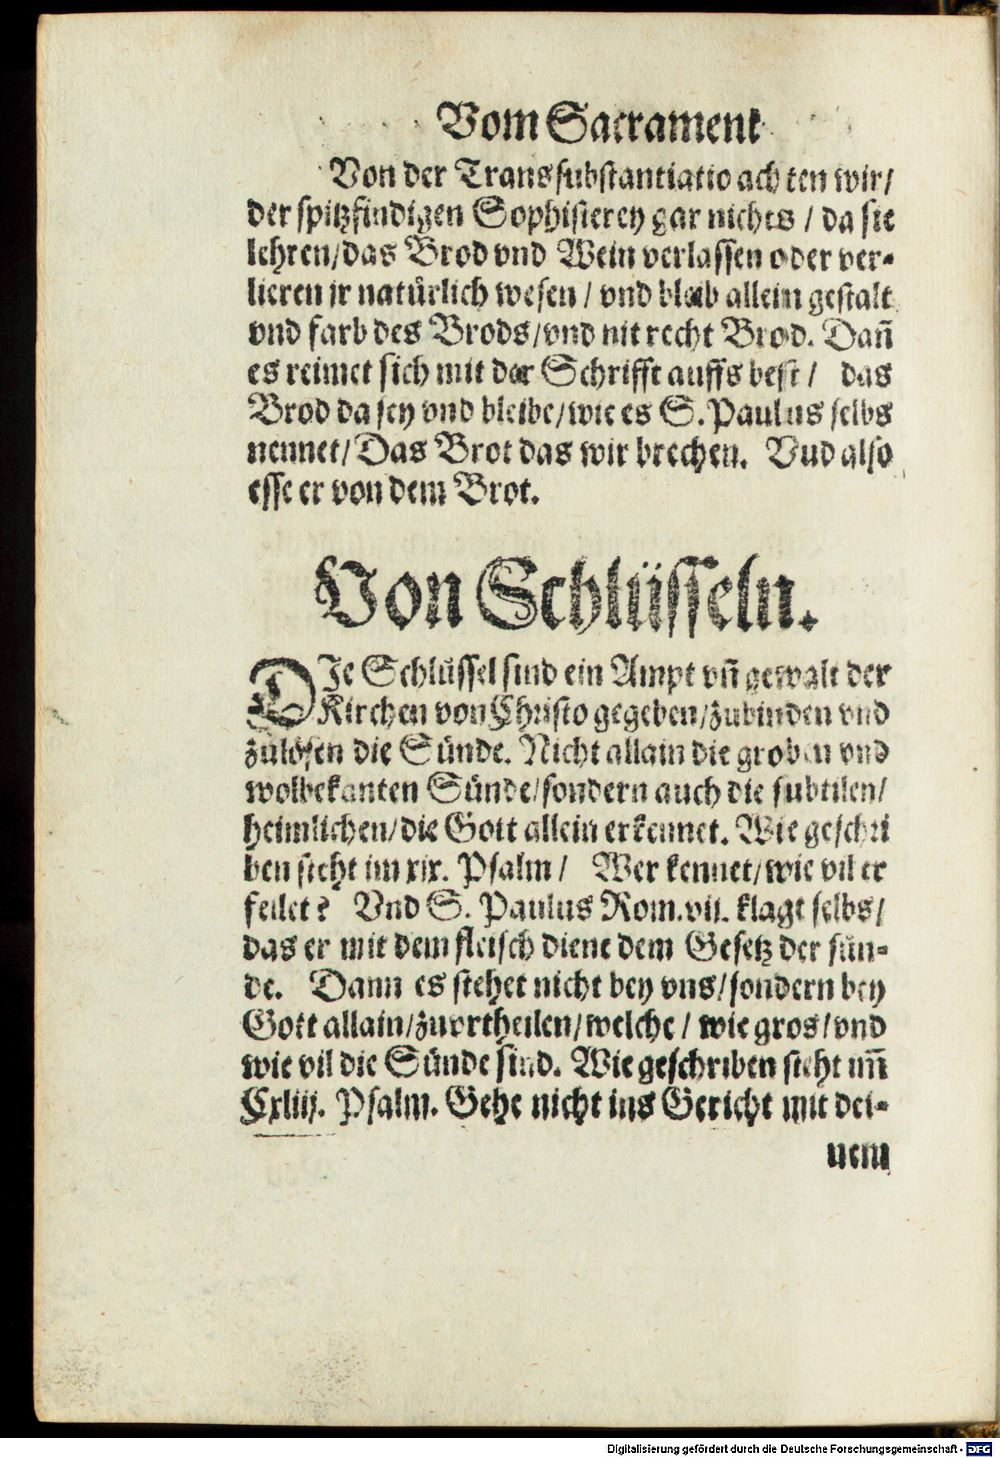 Vom Sacrament
Von der Transsubstantiatio achten wir/
der spitzfindigen Sophisterey gar nichts / da sie
lehren/das Brod vnd Wein verlassen oder ver-
lieren jr natürlich wesen / vnd bleib allein gestalt
vnd farb des Brods/vnd nit recht Brod. Dañ
es reimet sich mit der Schrifft auffs best / das
Brod da sey vnd bleibe/wie es S. Paulus selbs
nennet/Das Brot das wir brechen. Vnd also
esse er von dem Brot.
Von Schlüsseln.
DIe Schlüssel sind ein Ampt vñ gewalt der
Kirchen von Christo gegeben/zubinden vnd
zulösen die Sünde. Nicht allain die groben vnd
wolbekanten Sünde/sondern auch die subtilen/
heimlichen/die Gott allein erkennet. Wie geschri
ben steht im xix. Psalm / Wer kennet/wie vil er
feilet? Vnd S. Paulus Rom.vij. klagt selbs/
das er mit dem fleisch diene dem Gesetz der sün-
de. Dann es stehet nicht bey vns/sondern bey
Gott allain/zuvrtheilen/welche / wie gros/vnd
wie vil die Sünde sind. Wie geschriben steht im̃
Cxliij. Psalm. Gehe nicht ins Gericht mit dei-
nem
Digitalisierung gefördert durch die Deutsche Forschungsgemeinschaft - DFG